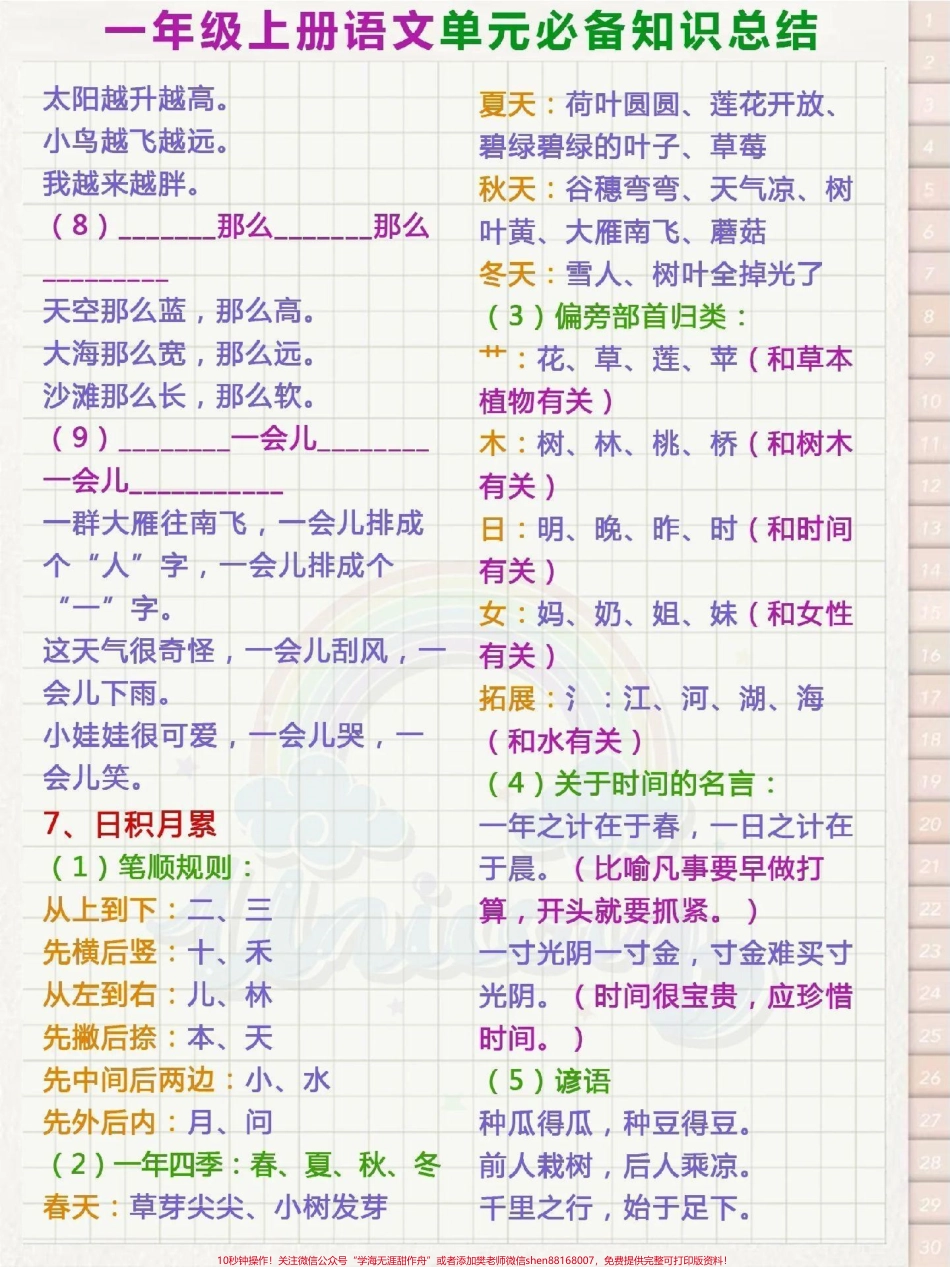 一年级上册语文单元必备知识总结
太阳越升越高。
小鸟越飞越远。
我越来越胖。
（8）_______那么_______那么
_________
天空那么蓝，那么高。
大海那么宽，那么远。
沙滩那么长，那么软。
（9）________一会儿________
一会儿___________
一群大雁往南飞，一会儿排成
个“人”字，一会儿排成个
“一”字。
这天气很奇怪，一会儿刮风，一
会儿下雨。
小娃娃很可爱，一会儿哭，一
会儿笑。
7、日积月累
（1）笔顺规则：
从上到下：二、三
先横后竖：十、禾
从左到右：儿、林
先撇后捺：本、天
先中间后两边：小、水
先外后内：月、问
（2）一年四季：春、夏、秋、冬
春天：草芽尖尖、小树发芽
夏天：荷叶圆圆、莲花开放、
碧绿碧绿的叶子、草莓
秋天：谷穗弯弯、天气凉、树
叶黄、大雁南飞、蘑菇
冬天：雪人、树叶全掉光了
（3）偏旁部首归类：
艹：花、草、莲、苹（和草本
植物有关）
木：树、林、桃、桥（和树木
有关）
日：明、晚、昨、时（和时间
有关）
女：妈、奶、姐、妹（和女性
有关）
拓展：氵：江、河、湖、海
（和水有关）
（4）关于时间的名言：
一年之计在于春，一日之计在
于晨。（比喻凡事要早做打
算，开头就要抓紧。）
一寸光阴一寸金，寸金难买寸
光阴。（时间很宝贵，应珍惜
时间。）
（5）谚语
种瓜得瓜，种豆得豆。
前人栽树，后人乘凉。
千里之行，始于足下。
1
2
3
4
5
6
7
8
9
10
11
12
13
14
15
16
17
18
19
20
21
22
23
24
25
26
27
28
29
30
Unicorn
10秒钟操作！关注微信公众号“学海无涯甜作舟”或者添加樊老师微信shen88168007，免费提供完整可打印版资料！